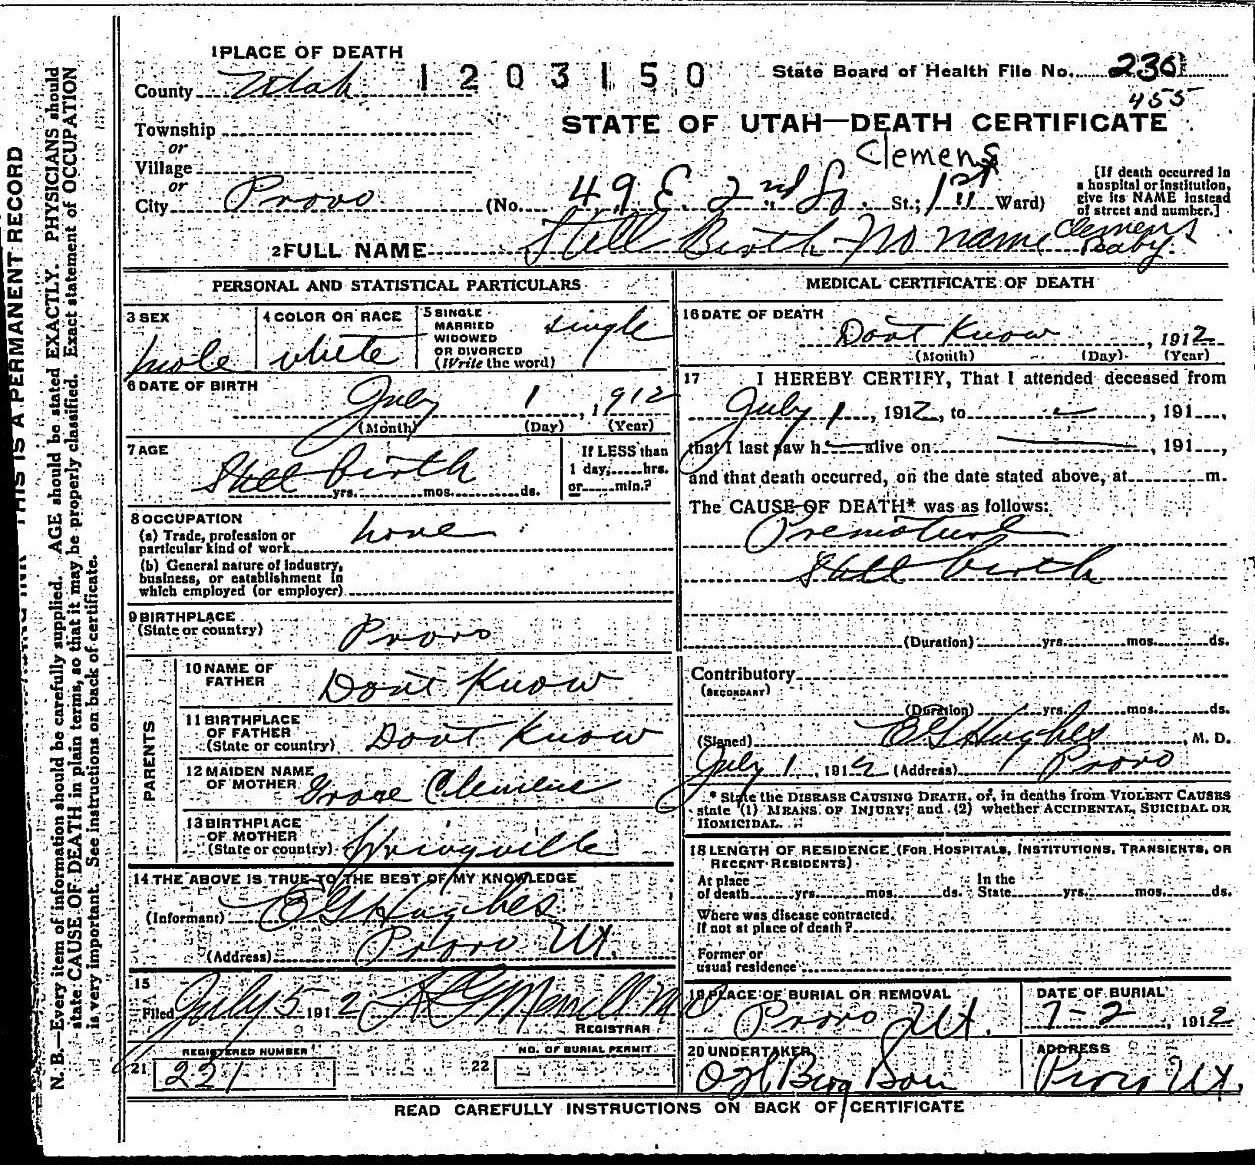 1 PLACE OF DEATH
County Utah
1203150
State Board of Health File No. 230
455
Township
or
Village
or
City Provo
STATE OF UTAH—DEATH CERTIFICATE
Clemens
(No. 49 E. 2nd So. St.; 1st Ward)
[If death occurred in a hospital or institution, give its NAME instead of street and number.]
2 FULL NAME Still Birth - No name Clemens Baby
PERSONAL AND STATISTICAL PARTICULARS
3 SEX male
4 COLOR OR RACE white
5 SINGLE MARRIED WIDOWED OR DIVORCED (Write the word) single
6 DATE OF BIRTH July 1, 1912
(Month) (Day) (Year)
7 AGE Still birth
yrs. mos. ds.
If LESS than 1 day, hrs. or min.?
8 OCCUPATION none
(a) Trade, profession or particular kind of work
(b) General nature of industry, business, or establishment in which employed (or employer)
9 BIRTHPLACE (State or country) Provo
PARENTS
10 NAME OF FATHER Dont Know
11 BIRTHPLACE OF FATHER (State or country) Dont Know
12 MAIDEN NAME OF MOTHER Grace Clemens
13 BIRTHPLACE OF MOTHER (State or country) Springville
14 THE ABOVE IS TRUE TO THE BEST OF MY KNOWLEDGE
(Informant) E G Hughes
(Address) Provo Ut.
15
Filed July 5 1912 Merrill M D
REGISTRAR
21 REGISTERED NUMBER 221
22 NO. OF BURIAL PERMIT
MEDICAL CERTIFICATE OF DEATH
16 DATE OF DEATH
Dont Know, 1912
(Month) (Day) (Year)
17 I HEREBY CERTIFY, That I attended deceased from
July 1, 1912, to , 191 ,
that I last saw h alive on 191 ,
and that death occurred, on the date stated above, at m.
The CAUSE OF DEATH* was as follows:
Premature
Still birth
(Duration) yrs. mos. ds.
Contributory
(SECONDARY)
(Duration) yrs. mos. ds.
(Signed) E G Hughes, M. D.
July 1, 1912 (Address) Provo
* State the DISEASE CAUSING DEATH, or, in deaths from VIOLENT CAUSES
state (1) MEANS OF INJURY; and (2) whether ACCIDENTAL, SUICIDAL OR
HOMICIDAL.
18 LENGTH OF RESIDENCE (FOR HOSPITALS, INSTITUTIONS, TRANSIENTS, OR
RECENT RESIDENTS)
At place of death yrs. mos. ds. In the State yrs. mos. ds.
Where was disease contracted,
if not at place of death?
Former or
usual residence
19 PLACE OF BURIAL OR REMOVAL Provo Ut.
DATE OF BURIAL 7-2, 1912
20 UNDERTAKER Berg Son
ADDRESS Provo Ut.
READ CAREFULLY INSTRUCTIONS ON BACK OF CERTIFICATE
INK—THIS IS A PERMANENT RECORD
N. B.—Every item of information should be carefully supplied. AGE should be stated EXACTLY. PHYSICIANS should
state CAUSE OF DEATH in plain terms, so that it may be properly classified. Exact statement of OCCUPATION
is very important. See instructions on back of certificate.